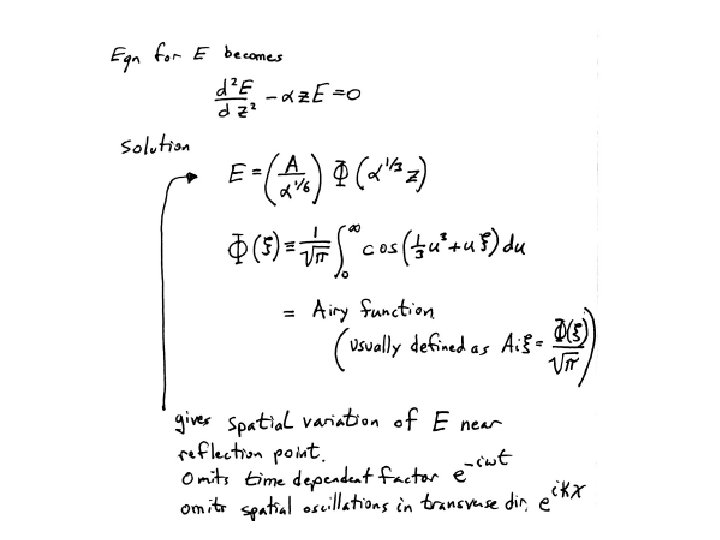 Eqn for E becomes
d²E/dz² - αzE = 0
Solution
E = (A/α^1/6) Φ(α^1/3 z)
Φ(ξ) ≡ 1/√π ∫₀^∞ cos(1/3 u³ + uξ) du
= Airy function
(usually defined as Aiξ = Φ(ξ)/√π)
gives spatial variation of E near
reflection point.
Omits time dependent factor e^-iωt
omits spatial oscillations in transverse dir, e^ikx